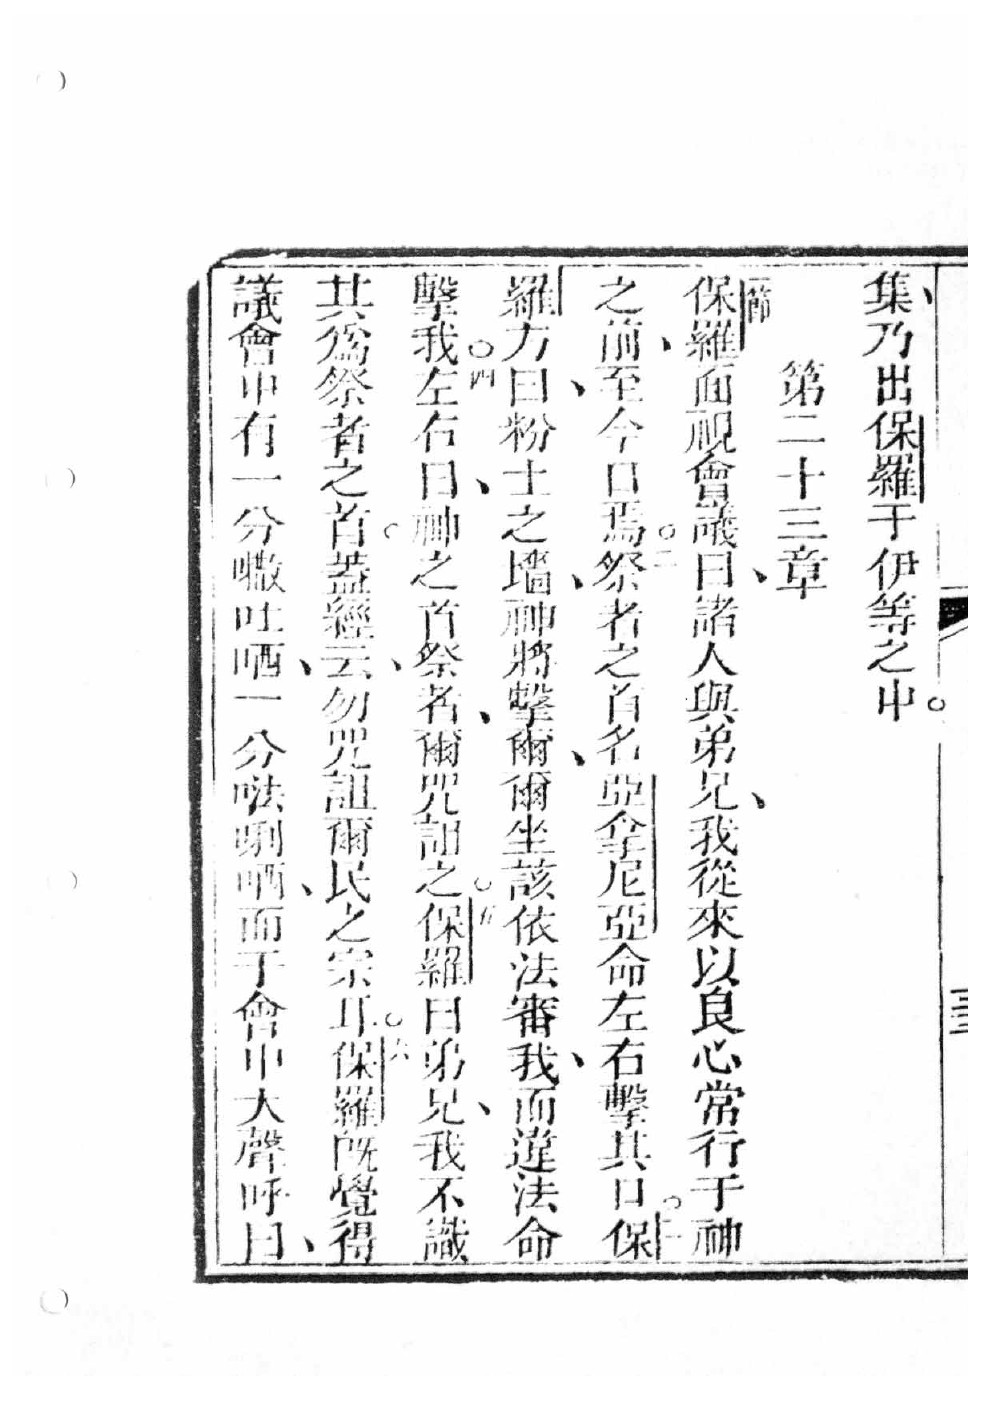 集、乃出保羅于伊等之中。
第二十三章
一節保羅面視會議曰、諸人與弟兄、我從來以良心常行于神
之前、至今日焉。二祭者之首名亞拿尼亞命左右擊其口。三保
羅方曰、粉士之墻、神將擊爾、爾坐該依法審我、而違法命
擊我。四左右曰、神之首祭者、爾咒詛之。五保羅曰、弟兄、我不識
其為祭者之首。蓋經云、勿咒詛爾民之宗耳。六保羅既覺得
議會中有一分𠹌吐哂、一分呿唎哂、而于會中大聲呼曰、
三